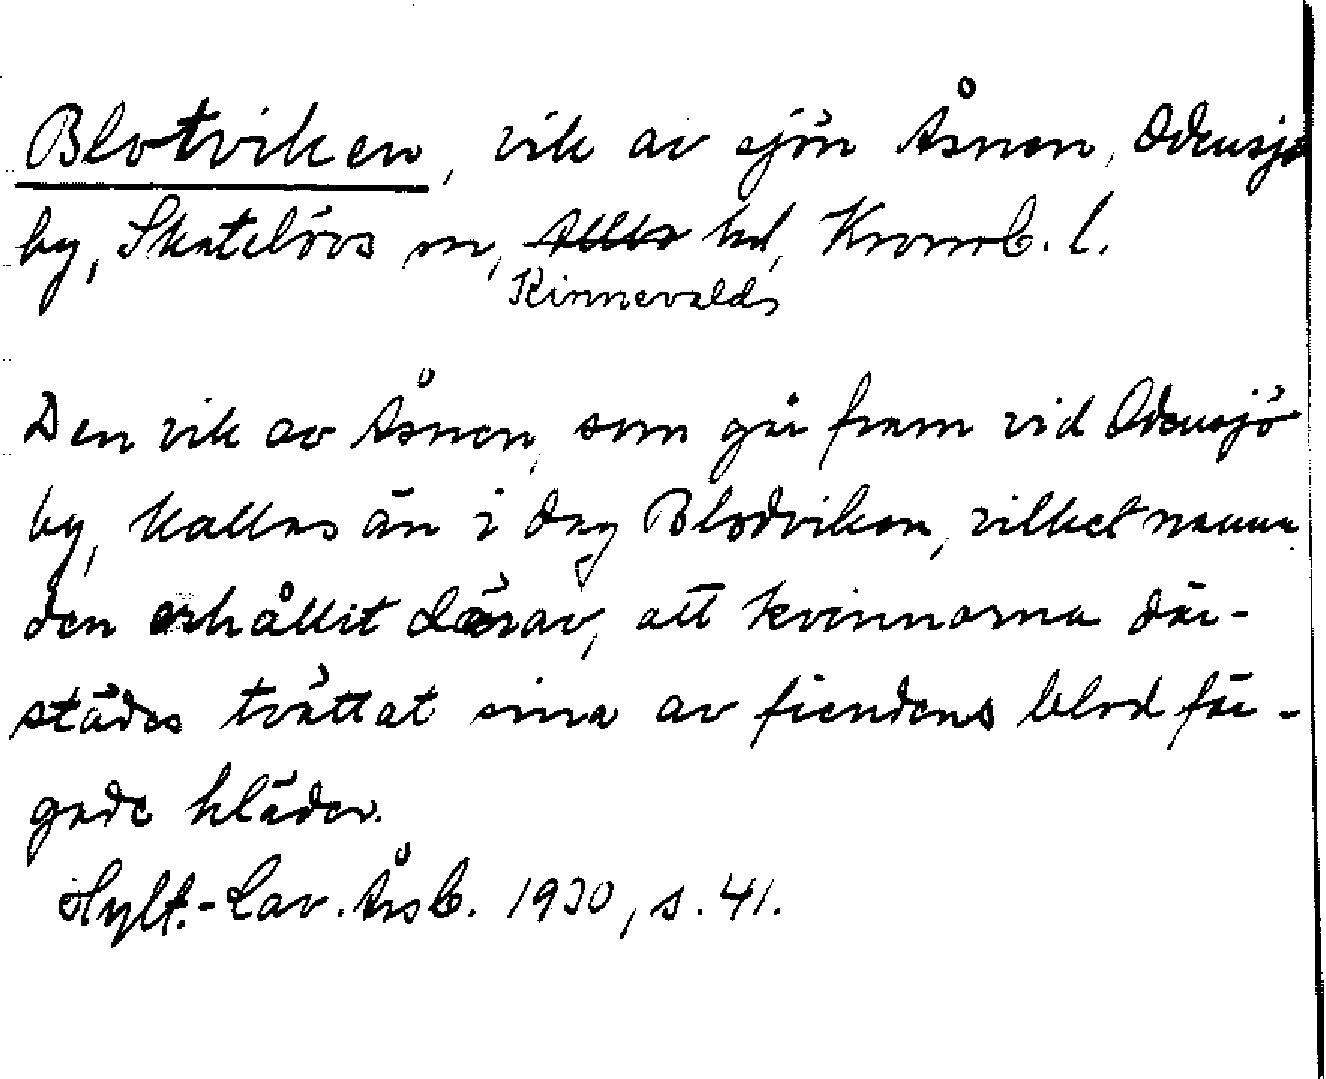 Blotviken, vik av sjön Åsnen, Odensjö
by, Skatelövs sn, Allbo hd, Kronob. l.
Kinnevalds
Den vik av Åsnen, som går fram vid Odensjö
by, kallas än i dag Blodviken, vilket namn
den erhållit därav, att kvinnorna där-
städes tvättat sina av fiendens blod fär-
gade kläder.
Hylt.-Cav. Årsb. 1930, s. 41.